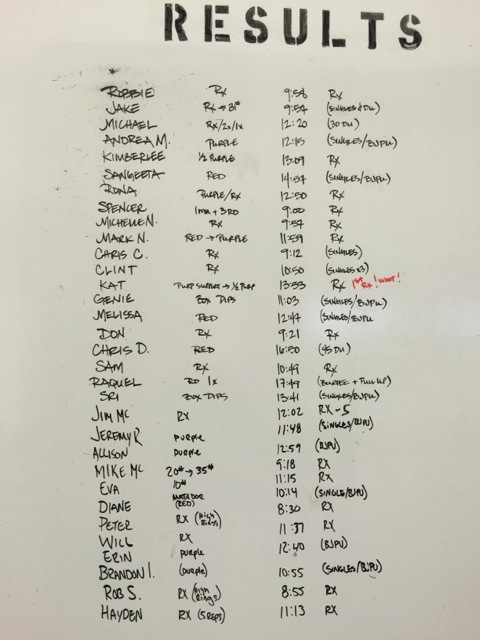 RESULTS
ROBBIE Rx 9:58 Rx
JAKE Rx → 31# 9:54 (SINGLES & DU)
MICHAEL Rx/2x/1x 12:20 (30 DU)
ANDREA M. PURPLE 12:15 (SINGLES/BJPU)
KIMBERLEE 1/2 PURPLE 13:09 Rx
SANGEETA RED 14:54 (SINGLES/BJPU)
RONA PURPLE/Rx 12:50 Rx
SPENCER + 3RD 9:00 Rx
MICHELLE N. Rx 9:54 Rx
MARK N. RED → PURPLE 11:59 Rx
CHRIS C. Rx 9:12 (SINGLES)
CLINT Rx 10:50 (SINGLES x3)
KAT PURP SUPPORT → 1/2 PURP 13:53 Rx 1st Rx! WOOT!
GENIE BOX DIPS 11:03 (SINGLES/BJPU)
MELISSA RED 12:47 (SINGLES/BJPU
DON Rx 9:21 Rx
CHRIS D. RED 16:50 (45 DU)
SAM Rx 10:49 Rx
RAQUEL RD 1x 17:49 (BURPEE + PULL UP)
SRI BOX DIPS 13:41 (SINGLES/BJPU)
JIM MC RX 12:02 RX-5
JEREMY R purple 11:48 (SINGLES/BJPU)
ALLISON purple 12:59 (BJPU)
MIKE MC 20# → 35# 9:18 RX
EVA 10# 11:15 RX
DIANE MATADOR (RED) 10:14 (SINGLE/BJPU)
PETER RX (High Rings) 8:30 RX
WILL RX 11:37 RX
ERIN purple 12:40 (BJPU)
BRANDON I. (purple) 10:55 (SINGLES/BJPU)
ROB S. RX (High Rings) 8:55 RX
HAYDEN RX (5 REPS) 11:13 RX